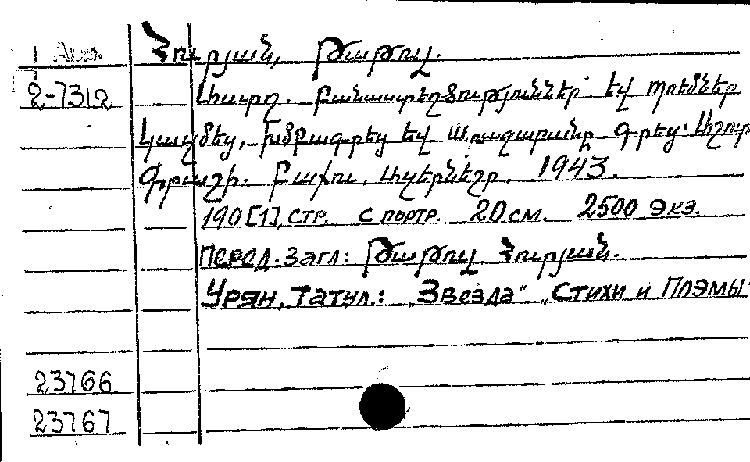 Հուրյան, Թաթուլ.
2-7312 Աստղ. Բանաստեղծություններ եվ պոեմներ
Կազմեց, խմբագրեց եվ առաջաբանը գրեց: Աշոտ
Գրաշի. Բաքու, Ազերնեշր, 1943.
190 [1], стр. с портр. 20 см. 2500 экз.
Перед. загл: Թաթուլ Հուրյան.
Урян, Татул.: „Звезда" „Стихи и Поэмы"
23766
23767